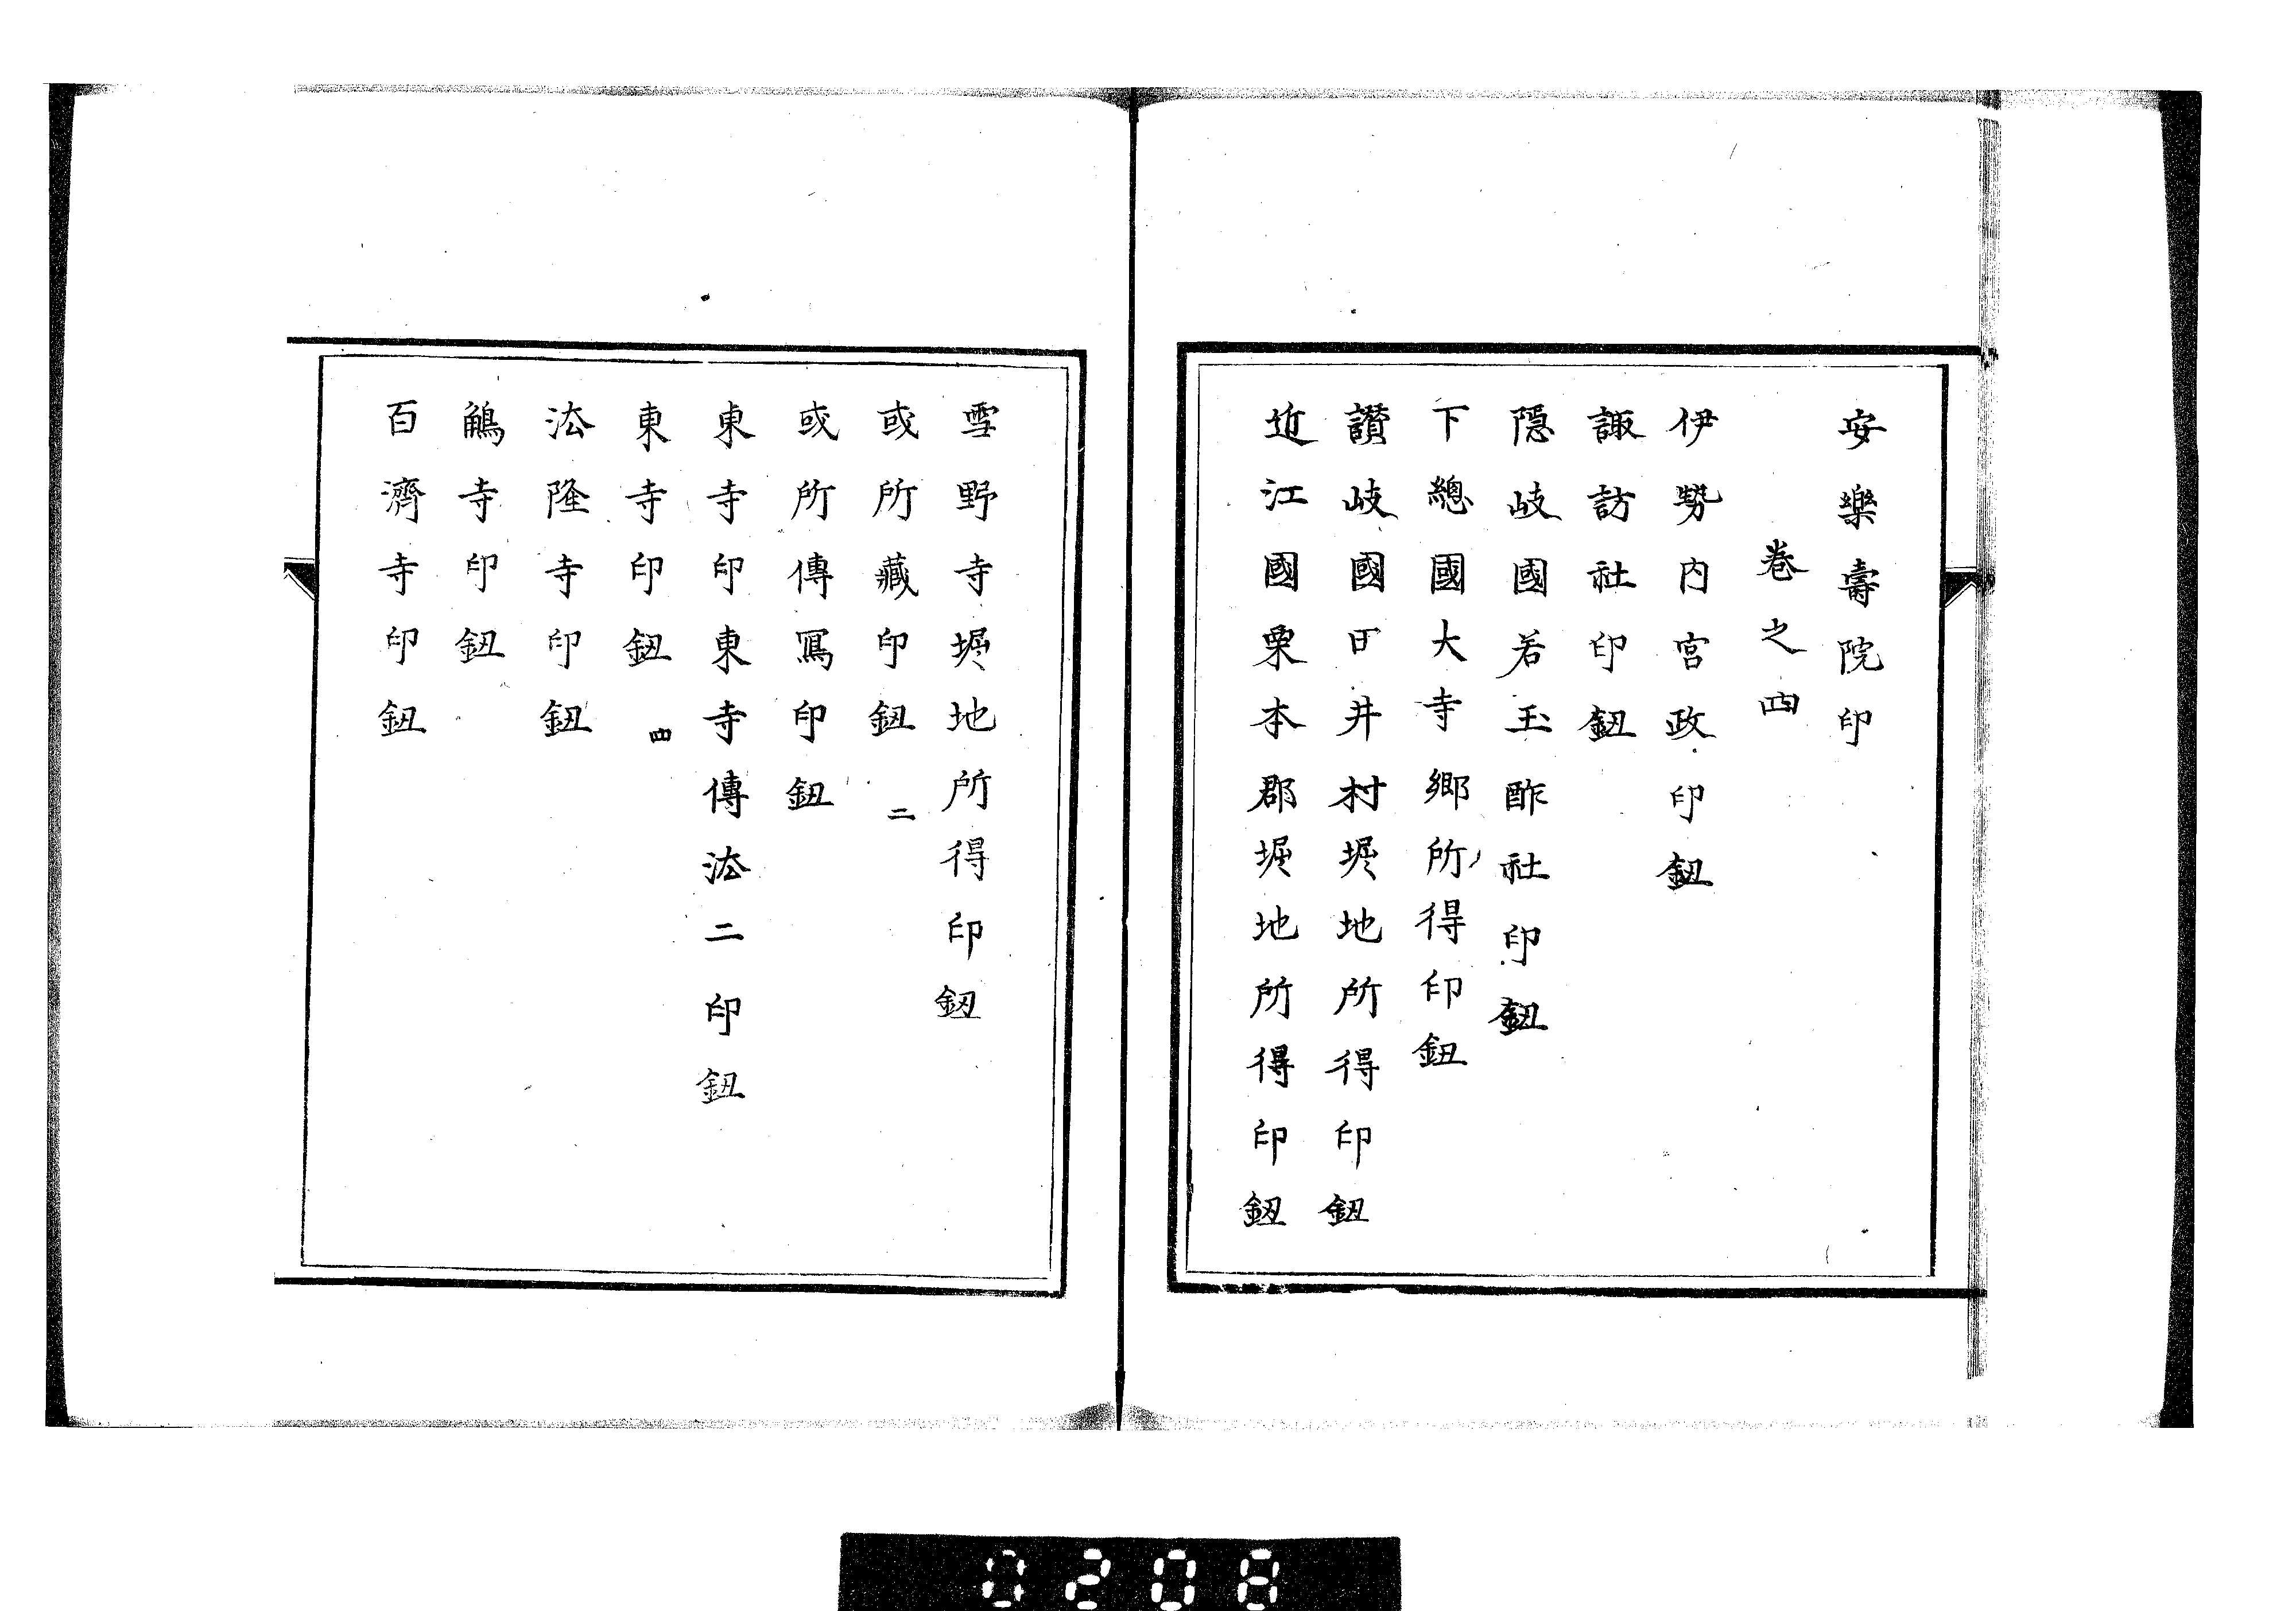 安樂壽院印
卷之四
伊勢内宮政印鈕
諏訪社印鈕
隠岐國若玉酢社印鈕
下總國大寺鄉所得印鈕
讃岐國田井村堀地所得印鈕
近江國栗本郡堀地所得印鈕
雪野寺堀地所得印鈕
或所藏印鈕 二
或所傳寫印鈕
東寺印東寺傳法二印鈕
東寺印鈕 四
法隆寺印鈕
鵤寺印鈕
百濟寺印鈕
0208